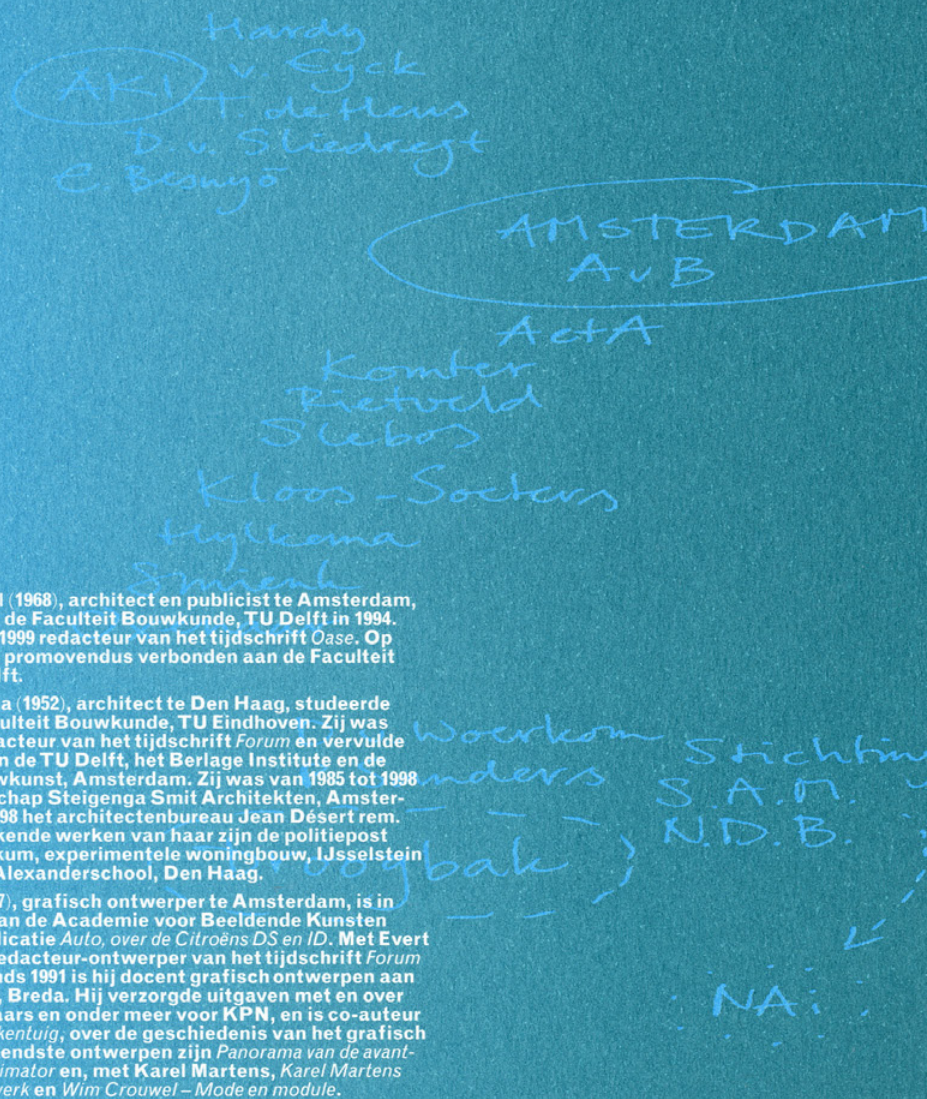 Hardy
AKI
v. Eyck
T. de Heus
D. v. Sliedregt
E. Besnyö
AMSTERDAM
AvB
AetA
Komter
Rietveld
Slebos
Kloos - Soeters
Hylkema
Smienk
(1968), architect en publicist te Amsterdam,
de Faculteit Bouwkunde, TU Delft in 1994.
1999 redacteur van het tijdschrift Oase. Op
promovendus verbonden aan de Faculteit
lft.
a (1952), architect te Den Haag, studeerde
ulteit Bouwkunde, TU Eindhoven. Zij was
acteur van het tijdschrift Forum en vervulde
n de TU Delft, het Berlage Institute en de
wkunst, Amsterdam. Zij was van 1985 tot 1998
chap Steigenga Smit Architekten, Amster-
98 het architectenbureau Jean Désert rem.
kende werken van haar zijn de politiepost
kum, experimentele woningbouw, IJsselstein
Alexanderschool, Den Haag.
7), grafisch ontwerper te Amsterdam, is in
an de Academie voor Beeldende Kunsten
licatie Auto, over de Citroëns DS en ID. Met Evert
edacteur-ontwerper van het tijdschrift Forum
nds 1991 is hij docent grafisch ontwerpen aan
, Breda. Hij verzorgde uitgaven met en over
aars en onder meer voor KPN, en is co-auteur
kentuig, over de geschiedenis van het grafisch
endste ontwerpen zijn Panorama van de avant-
imator en, met Karel Martens, Karel Martens
verk en Wim Crouwel – Mode en module.
Woerkom
nders
bak)
Stichting
S.A.M.
N.D.B.
NAi